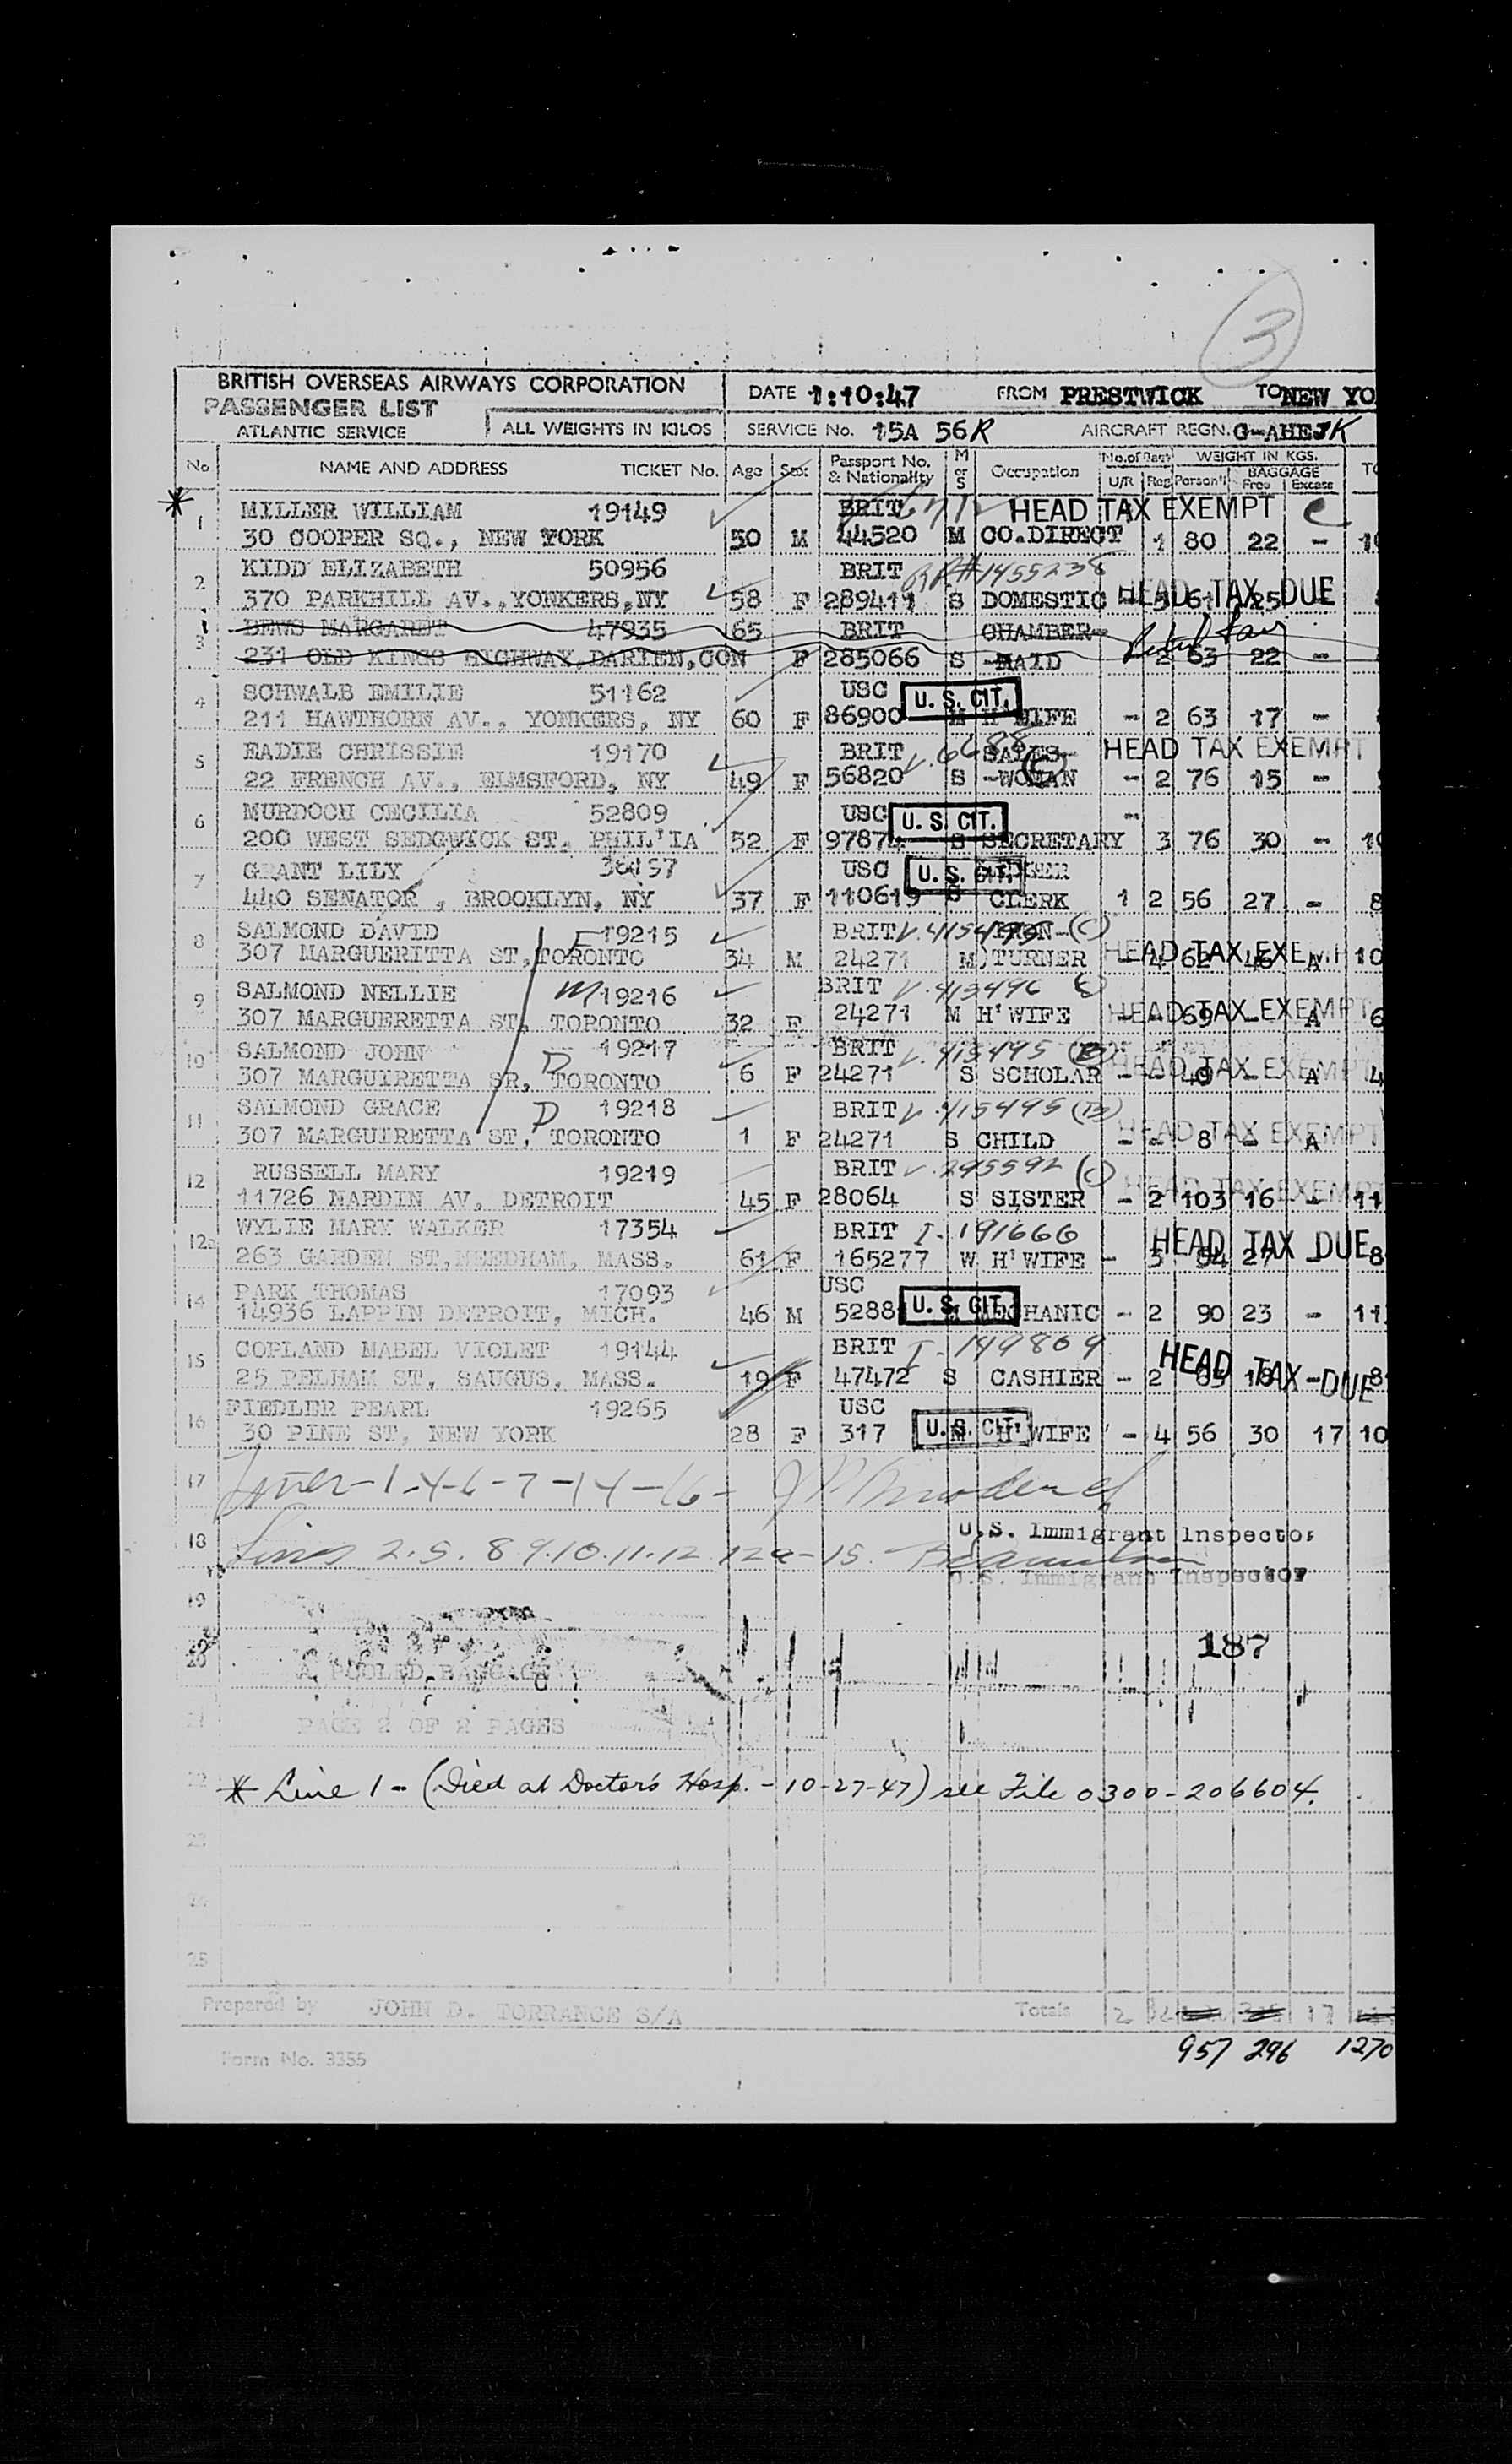 3
BRITISH OVERSEAS AIRWAYS CORPORATION DATE 1:10:47 FROM PRESTWICK TO NEW YO
PASSENGER LIST
ATLANTIC SERVICE ALL WEIGHTS IN KILOS SERVICE No. 15A 56R AIRCRAFT REGN. G-AHEJK
No NAME AND ADDRESS TICKET No. Age Sex Passport No. & Nationality M or S Occupation No. of Bags U/R Reg WEIGHT IN KGS. Person'l BAGGAGE Free Excess TO
* 1 MILLER WILLIAM 19149 BRIT HEAD TAX EXEMPT
30 COOPER SQ., NEW YORK 50 M 44520 M CO.DIRECT 1 80 22 - 10
2 KIDD ELIZABETH 50956 BRIT RP#1455238
370 PARKHILL AV.,YONKERS,NY 58 F 289411 S DOMESTIC - 3 61 25 HEAD TAX DUE
3 DEWS MARGARET 47935 65 BRIT CHAMBER-
231 OLD KINGS HIGHWAY,DARIEN,CON F 285066 S -MAID 2 63 22 -
4 SCHWALB EMILIE 51162 USC U. S. CIT.
211 HAWTHORN AV., YONKERS, NY 60 F 86900 M H'WIFE - 2 63 17 -
5 EADIE CHRISSIE 19170 BRIT V.6688 SALES- HEAD TAX EXEMPT
22 FRENCH AV., ELMSFORD, NY 49 F 56820 S -WOMAN (C) - 2 76 15 -
6 MURDOCH CECILIA 52809 USC U. S. CIT. -
200 WEST SEDGWICK ST, PHIL'IA 52 F 97874 S SECRETARY 3 76 30 - 10
7 GRANT LILY USC U. S. CIT.
440 SENATOR , BROOKLYN, NY 37 F 110619 S CLERK 1 2 56 27 - 8
8 SALMOND DAVID F 19215 BRIT (C)
307 MARGUERITTA ST, TORONTO 34 M 24271 M TURNER - 4 62 46 A 10 HEAD TAX EXEMPT
9 SALMOND NELLIE M 19216 BRIT V.415496
307 MARGUERETTA ST, TORONTO 32 F 24271 M H'WIFE - - 69 - A 6 HEAD TAX EXEMPT
10 SALMOND JOHN D 19217 BRIT V.415495 (B)
307 MARGUIRETTA SR, TORONTO 6 F 24271 S SCHOLAR - - 40 - A 4 HEAD TAX EXEMPT
11 SALMOND GRACE D 19218 BRIT V.415495 (B)
307 MARGUIRETTA ST, TORONTO 1 F 24271 S CHILD - - 8 - A HEAD TAX EXEMPT
12 RUSSELL MARY 19219 BRIT V.295592 (C)
11726 NARDIN AV, DETROIT 45 F 28064 S SISTER - 2 103 16 - 11 HEAD TAX EXEMPT
12a WYLIE MARY WALKER 17354 BRIT I-191666
263 GARDEN ST,NEEDHAM, MASS. 61 F 165277 W H'WIFE - 3 54 27 - 8 HEAD TAX DUE
14 PARK THOMAS 17093 USC
14936 LAPPIN DETROIT, MICH. 46 M 5288 U. S. CIT. MECHANIC - 2 90 23 - 11
15 COPLAND MABEL VIOLET 19144 BRIT I-149809
25 PELHAM ST, SAUGUS, MASS. 19 F 47472 S CASHIER - 2 18 - 8 HEAD TAX DUE
16 FIEDLER PEARL 19265 USC
30 PINE ST, NEW YORK 28 F 317 U. S. CIT. H'WIFE - 4 56 30 17 10
17 1-4-6-7-14-16-
18 Lines 2.5.8 9.10.11.12 12a-15. U.S. Immigrant Inspector
U.S. Immigrant Inspector
19
187
20 A POOLED BAGGAGE
21 PAGE 2 OF 2 PAGES
22 * Line 1 - (Died at Doctor's Hosp. - 10-27-47) see File 0300-206604.
23
24
25
Prepared by JOHN D. TORRANCE S/A Totals 2 17
957 296 1270
Form No. 3355